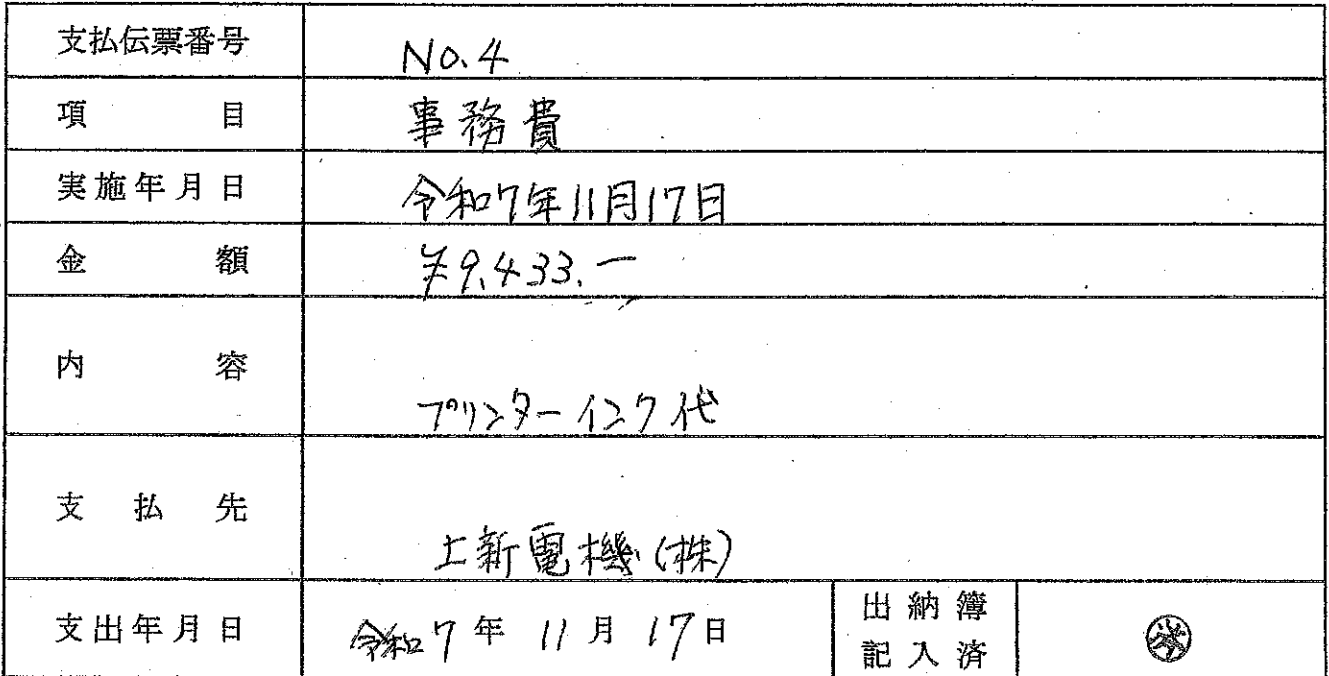 支払伝票番号 No.4
項目 事務費
実施年月日 令和7年11月17日
金額 ¥9,433.-
内容 プリンターインク代
支払先 上新電機(株)
支出年月日 令和7年11月17日 出納簿
記入済